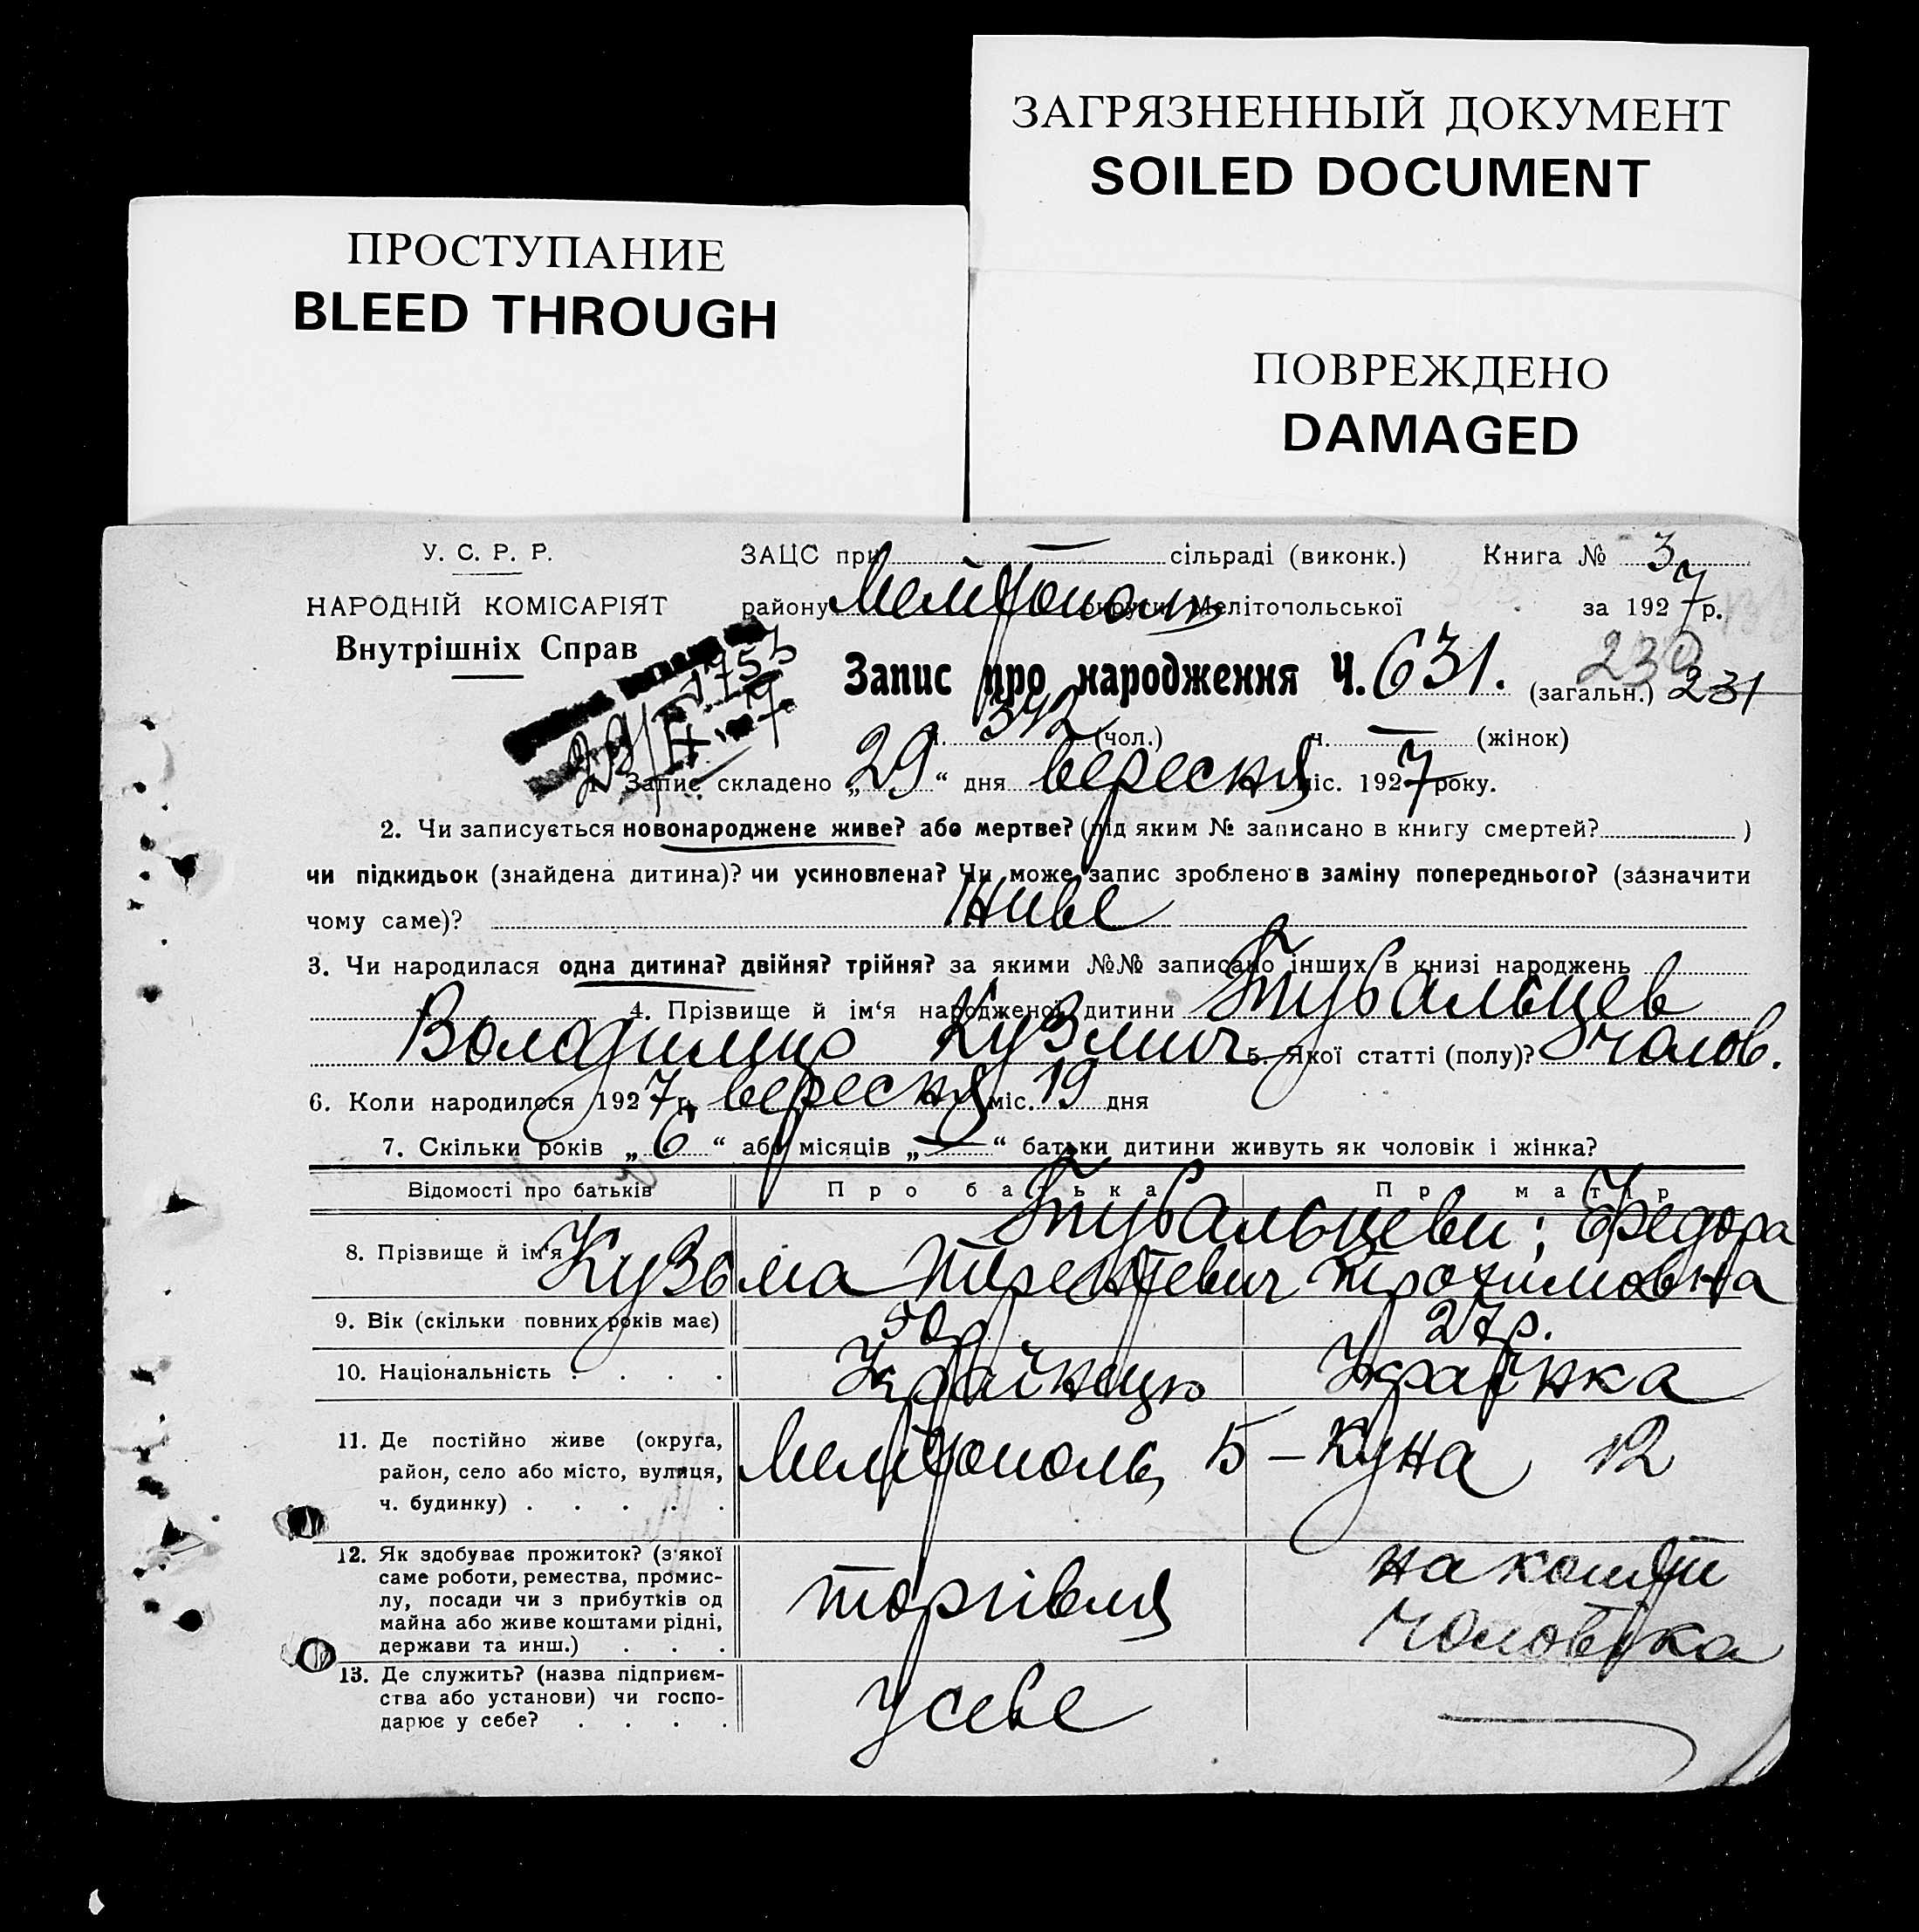 ЗАГРЯЗНЕННЫЙ ДОКУМЕНТ
SOILED DOCUMENT
ПРОСТУПАНИЕ
BLEED THROUGH
ПОВРЕЖДЕНО
DAMAGED
У. С. Р. Р.
НАРОДНІЙ КОМІСАРІЯТ
Внутрішніх Справ
ЗАЦС при — сільраді (виконк.) Книга № 3
району Мелітополь округи Мелітопольської за 1927 р.
Запис про народження Ч. 631. (загальн.) 230 231
ч. 342 (чол.) ч. — (жінок)
1. Запис складено „29“ дня вересня міс. 1927 року.
2. Чи записується новонароджене живе? або мертве? (під яким № записано в книгу смертей? )
чи підкидьок (знайдена дитина)? чи усиновлена? Чи може запис зроблено в заміну попереднього? (зазначити
чому саме)? Живе
3. Чи народилася одна дитина? двійня? трійня? за якими №№ записано інших в книзі народжень
4. Прізвище й ім‘я народженої дитини Тувальцев
Володимир Кузмич 5. Якої статті (полу)? чолов.
6. Коли народилося 1927 р. вересня міс. 19 дня
7. Скільки років „6“ або місяців „—“ батьки дитини живуть як чоловік і жінка?
Відомості про батьків Про батька Про матір
8. Прізвище й ім‘я Тувальцеви; Федора
Кузьма Трохимовна
9. Вік (скільки повних років має) 50 р. 27 р.
10. Національність . . . . Українець Українка
11. Де постійно живе (округа,
район, село або місто, вулиця,
ч. будинку) . . . . .
Мелітополь, Б-Куна 12
12. Як здобуває прожиток? (з якої
саме роботи, ремества, промис-
лу, посади чи з прибутків од
майна або живе коштами рідні,
держави та инш.) . . .
торгівля
на кошти
чоловіка
13. Де служить? (назва підприєм-
ства або установи) чи госпо-
дарює у себе? . . . .
у себе
—